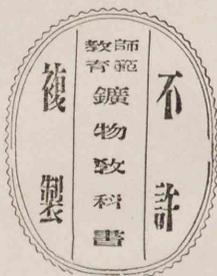 不許
師範
教育
鑛物敎科書
複製